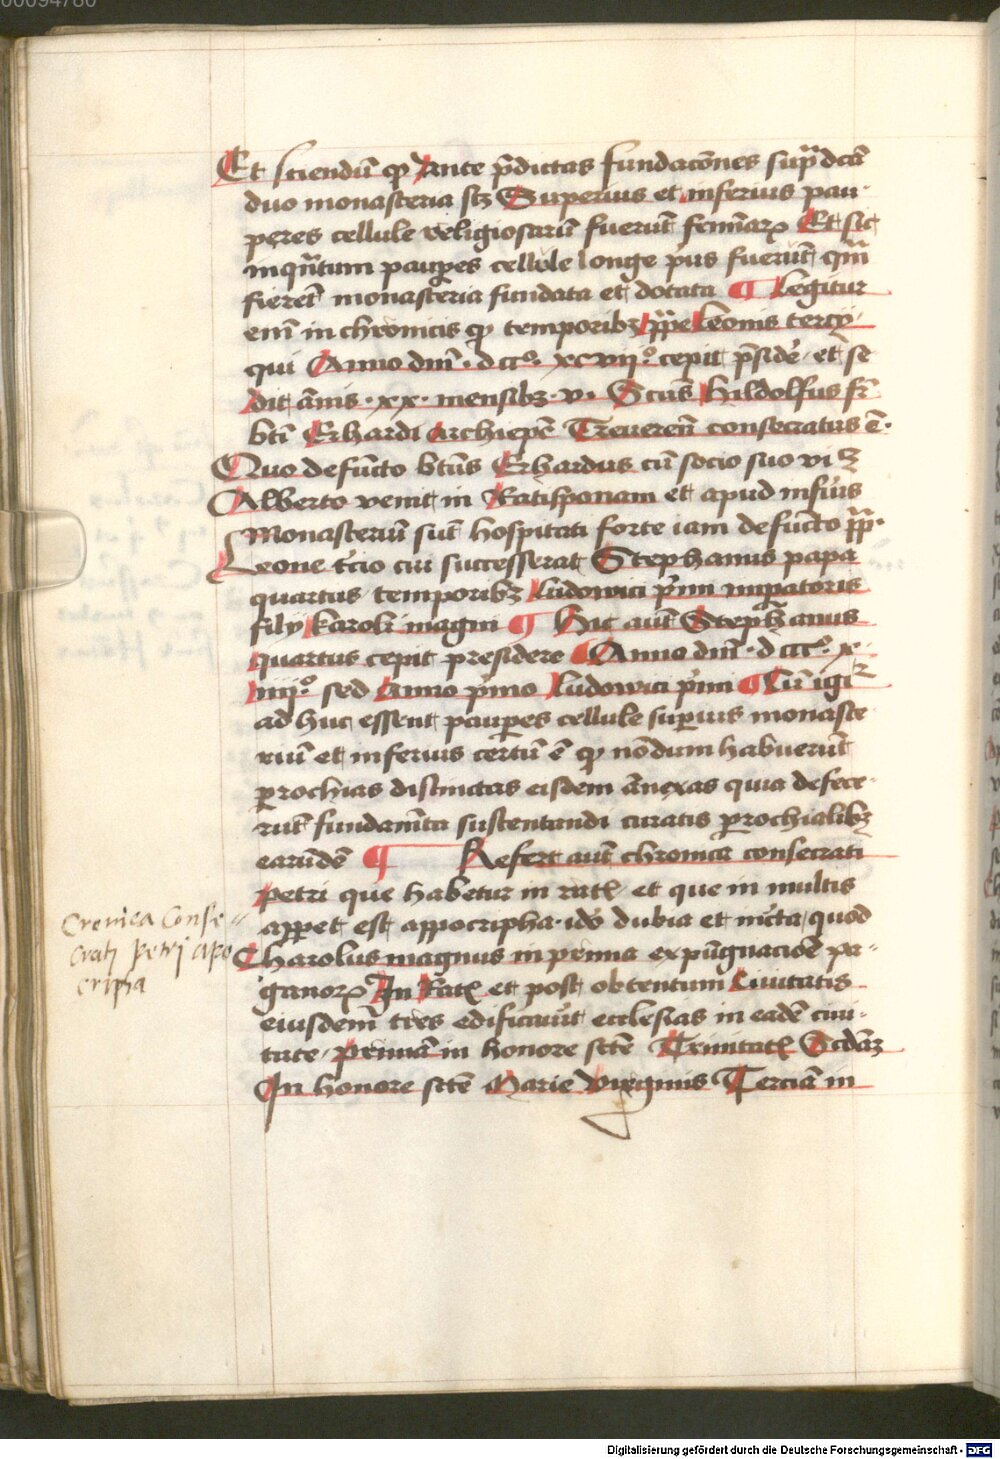 00094780
Et sciendū ꝙ Ante p̄dictas fundacōnes sup̄dcā
duo monasteria scꝫ Superius et inferius pau-
peres cellule religiosarū fuerūt feminarꝝ Et sic
inqn̄tum pauꝑes cellule longe pͥus fuerūt qm̄
fierēt monasteria fundata et dotata ¶ Legitur
enī in chronicis ꝙ temporibꝫ ꝑpe Leonis tercij
qui Anno dnī · dcc° · xcvij° cepit p̄sidē · et se
dit ānis · xx · mensibꝫ · v · Scūs Hildolfus fr̄
btī Erhardi Archiepē Treuereñ consecratus ē ·
Quo defūcto btūs Erhardus cū socio suo viꝫ
Alberto venit in Ratisponam et apud infius
Monasteriū sūt hospitati forte iam defūcto pp̄ ·
Leone t̄cio cui successerat Stephanus papa
quartus temporibꝫ Ludowici pͥmi impatoris
filij karoli magni ¶ Hic aūt Stephanus
quartus cepit presidere ¶ Anno dnī · dccc° · x
iiij° sed Anno pͥmo Ludowici pͥmi ¶ Cū igiᷣ
ad huc essent pauꝑes cellule suꝑius monaste
riū et inferius certū ē ꝙ nōdum habuerūt
ꝑrochias distinctas eisdem ānexas quia defece-
rūt fundamēta sustentandi curatis ꝑrochialibꝫ
earūdē ¶ Refert aūt chronica consecrati
Petri que habetur in ratꝭ et que in multis
apꝑet est appocripha · idō dubia et incta, quod
Charolus magnus in prima expūgnacioē pa-
ganorꝝ In Ratꝭ et post obtentum Ciuitatis
eiusdem tres edificauit ecclesias in eadē ciui-
tate · Primā in honore sctē Trinitatꝭ Scdāꝫ
In honore sctē Marie Virginis Terciā in
Cronica Conse-
crati petri apo
cripha
Digitalisierung gefördert durch die Deutsche Forschungsgemeinschaft - DFG